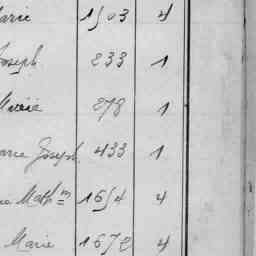 arie 1503 4
Joseph 233 1
Marie 278 1
arie Joseph 433 1
ie Math m 1654 4
Marie 1672 4